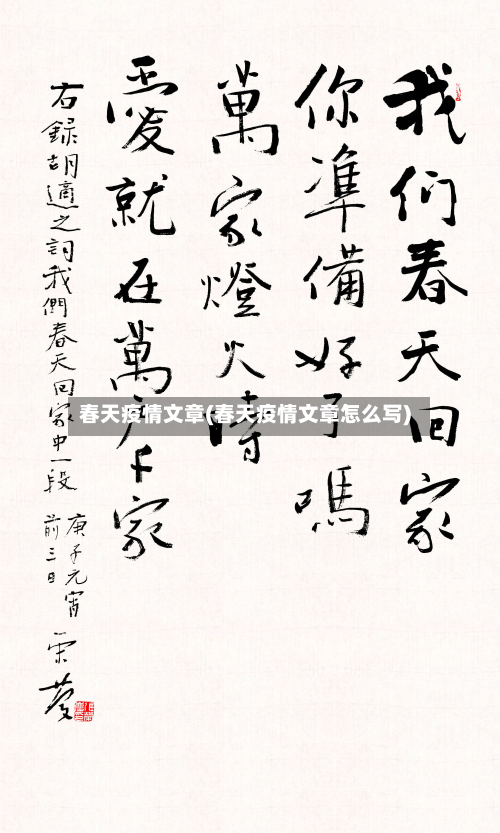 我们春天回家
你準備好了嗎
萬家燈火時
愛就在萬戶千家
右録胡適之詞我們春天回家中一段
庚子元宵
前三日
春天疫情文章(春天疫情文章怎么写)